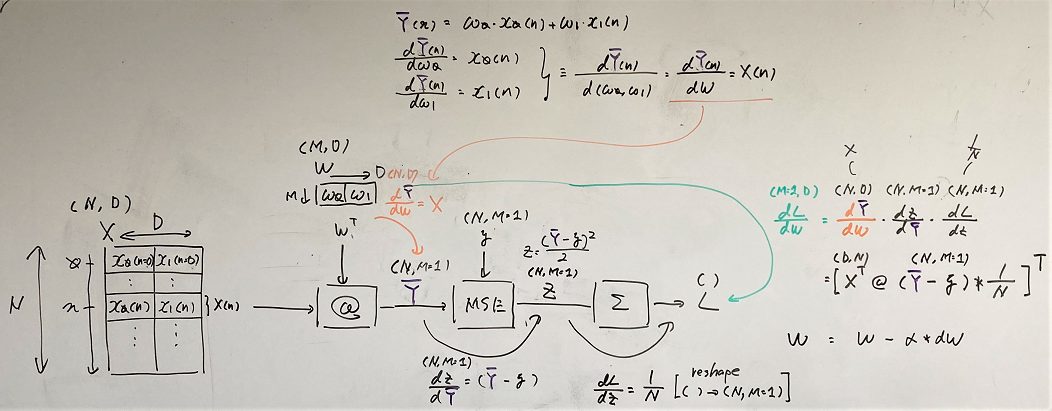 Ȳ(n) = ω0·x0(n)+ω1·x1(n)
dȲ(n)/dω0 = x0(n)
dȲ(n)/dω1 = x1(n)
} ≡ dȲ(n)/d(ω0,ω1) = dȲ(n)/dW = X(n)
(M,D)
W
D
M↓ ω0 ω1
(N,D)
dȲ/dW = X
W^T
(N,D)
X
D
N
0
x0(n=0) x1(n=0)
: :
n
x0(n) x1(n) } X(n)
: :
@
(N,M=1)
Ȳ
(N,M=1)
y
MSE
z = (Ȳ-y)²/2
(N,M=1)
Z
Σ
( )
L
(N,M=1)
dz/dȲ = (Ȳ-y)
dL/dz = 1/N [( ) → (N,M=1)]
reshape
X 1/N
(M=1,D) (N,D) (N,M=1) (N,M=1)
dL/dW = dȲ/dW · dz/dȲ · dL/dz
(D,N) (N,M=1)
= [X^T @ (Ȳ-y) * 1/N]^T
W = W - α*dW